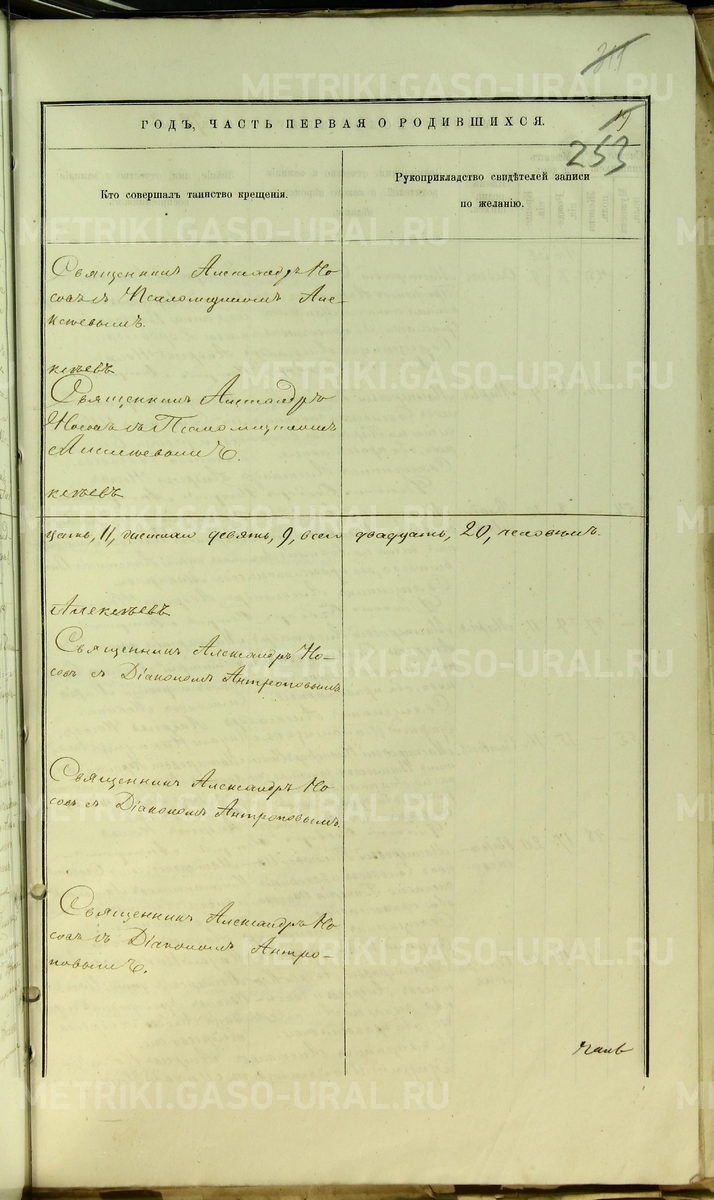 311
METRIKI.GASO-URAL.RU
ГОДЪ, ЧАСТЬ ПЕРВАЯ О РОДИВШИХСЯ.
253
Кто совершалъ таинство крещенія.
Рукоприкладство свидѣтелей записи
по желанію.
Священникъ Александръ Но
совъ съ Псаломщикомъ Але-
ксѣевымъ.
ксѣевъ
Священникъ Александръ
Носовъ съ Псаломщикомъ
Алексѣевымъ.
ксѣевъ
цать, 11, женскаго девять, 9, всего двадцать, 20, человѣкъ.
Алексѣевъ
Священникъ Александръ Но-
совъ съ Діакономъ Антроповымъ
Священникъ Александръ Но
совъ съ Діакономъ Антроповымъ.
Священникъ Александръ Но
совъ съ Діакономъ Антро-
повымъ.